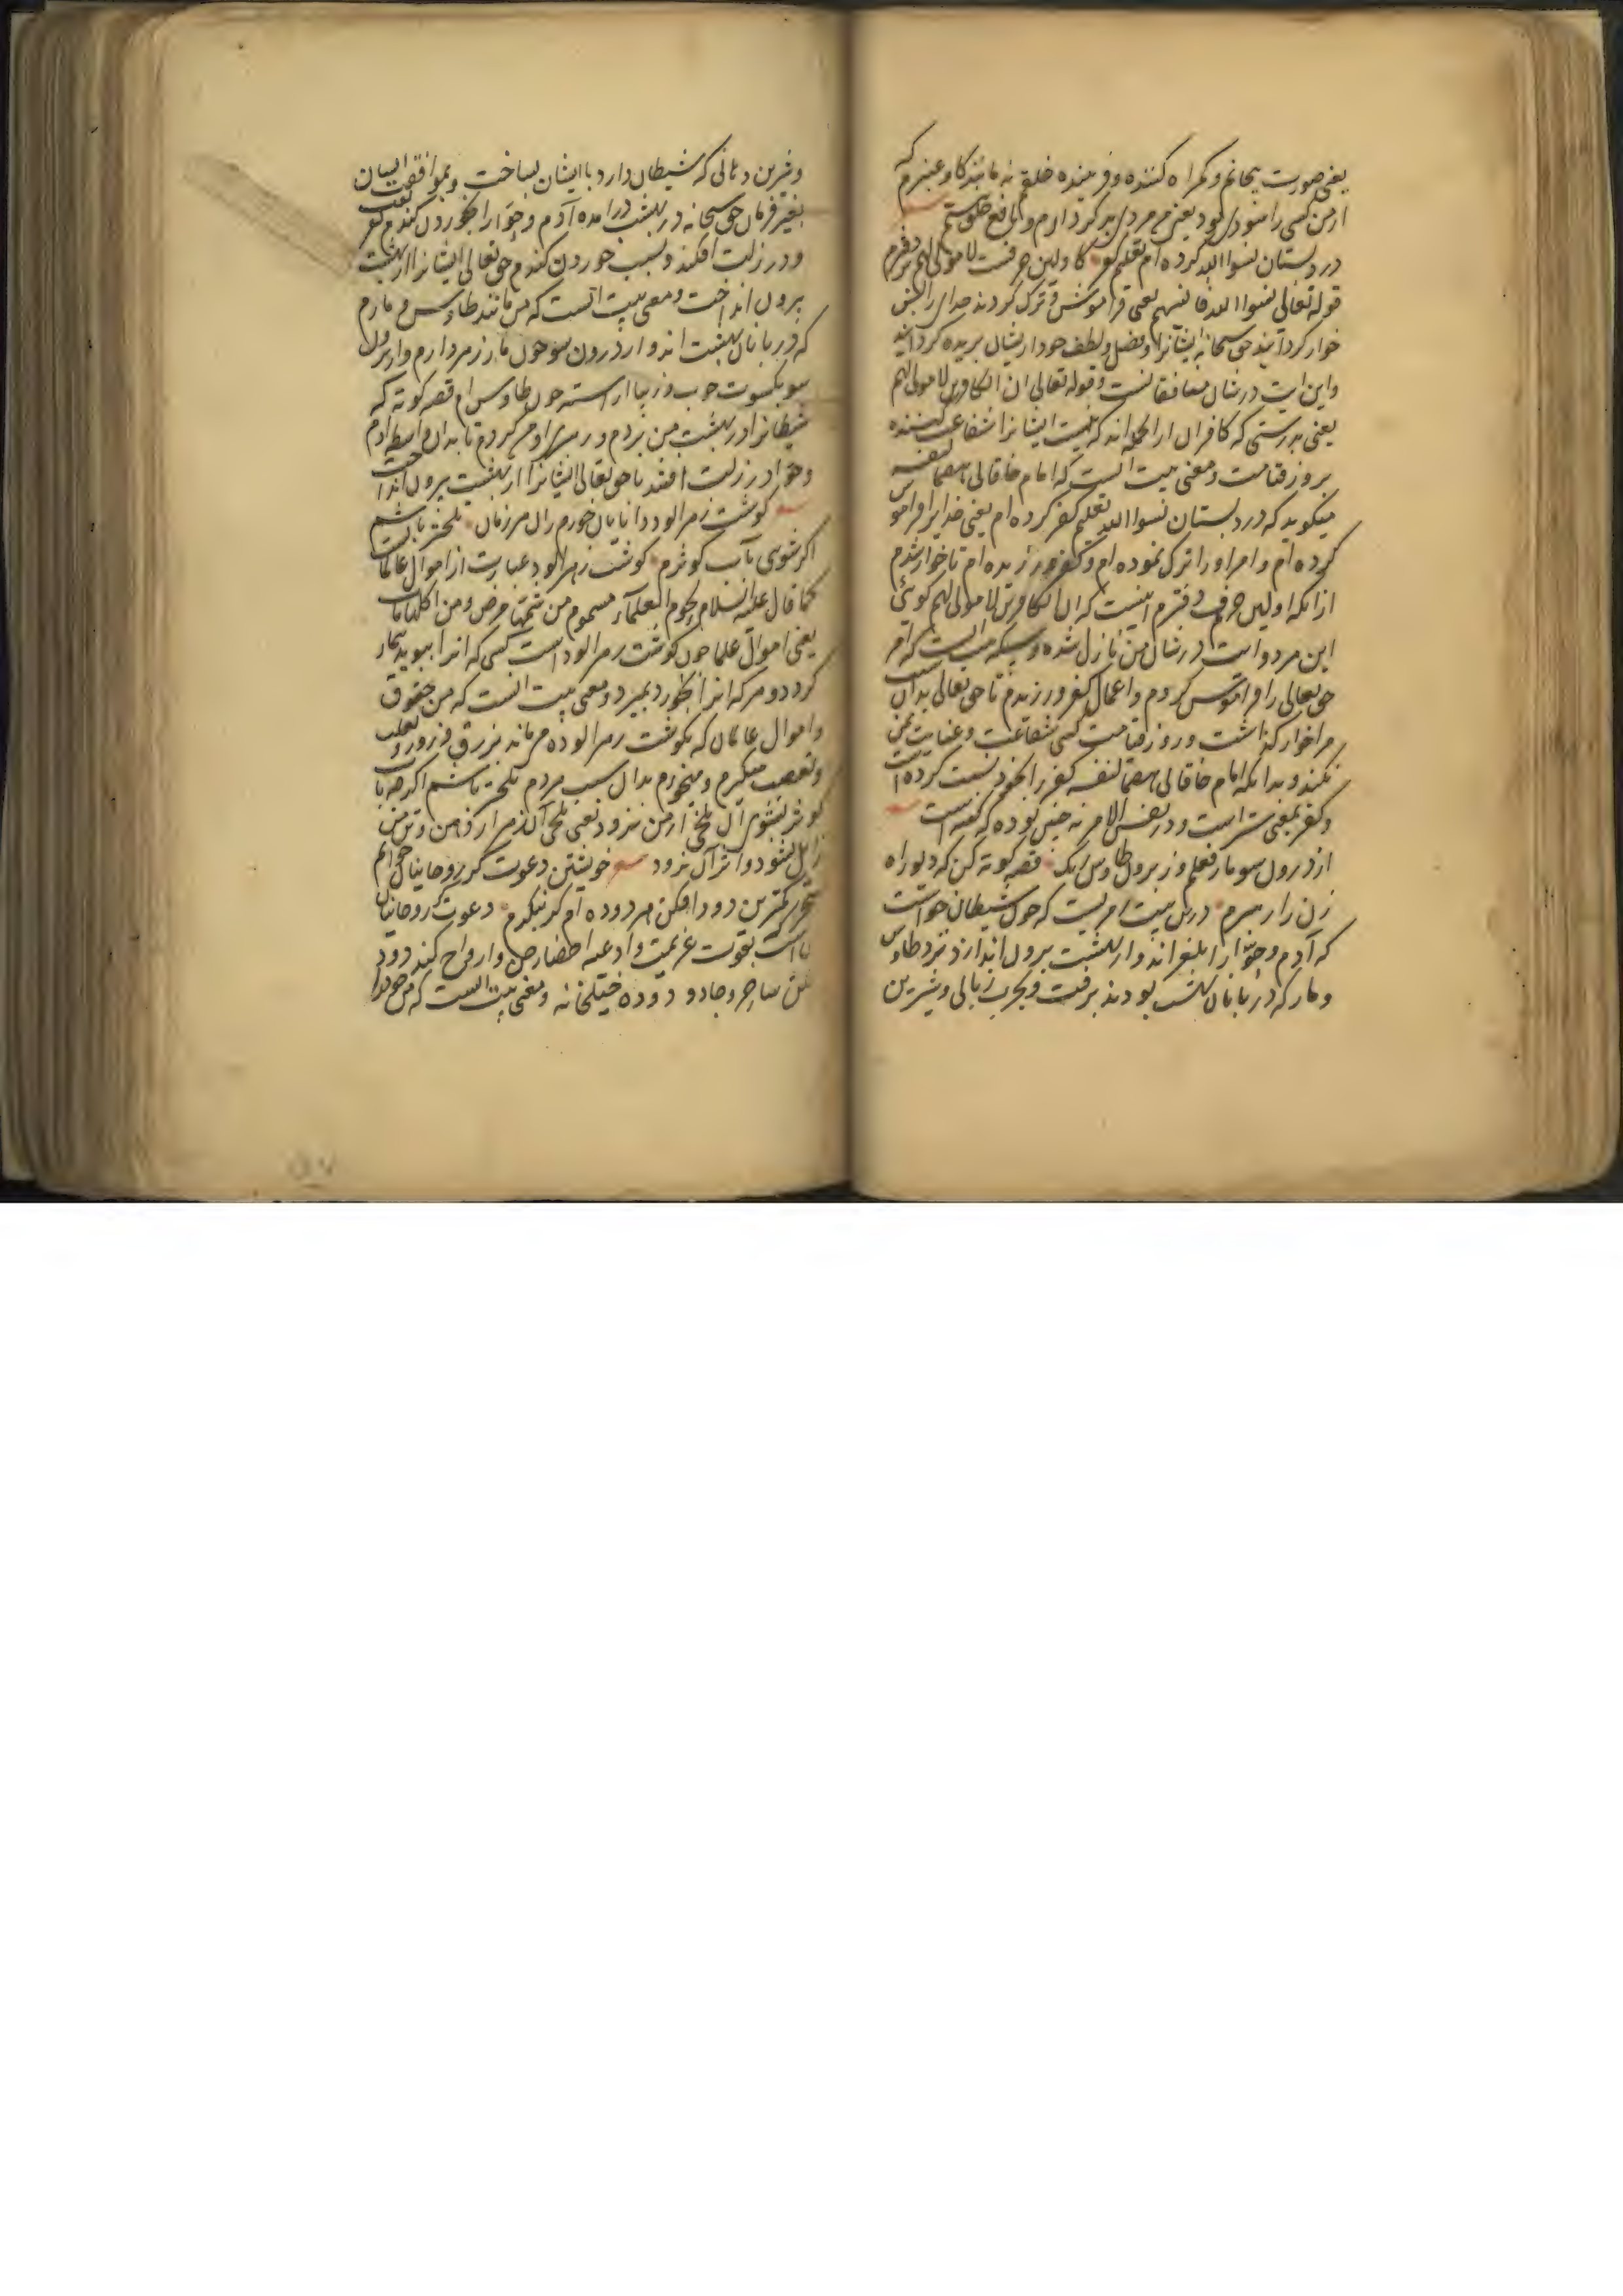 یعنی صورت بیجانم و کمراه کننده و فریبنده خلقم نه مانند کاو عنبرم که
ازمن کسی را سود بود یعنی من مردی بد کردارم و نافع خلق نیستم
در دبستان نسوا الله کرده ام تعلیم کفر کاولین حرفست لا مولی لهم بر دفترم
قوله تعالی نسوا الله فانسیهم یعنی فراموش و ترک کردند خدای را پس
خوار کردانید حق سبحانه ایشانرا و فضل و لطف خود از یشان بریده کردانید
واین ایت در شان منافقانست و قوله تعالی ان الکافرین لا مولی لهم
یعنی بدرستی که کافران انانند که نیست ایشانرا شفاعت کننده
بروز قیامت و معنی بیت انست که امام خاقانی
میکوید که در دبستان نسوا الله تعلیم کفر کرده ام یعنی خدایرا فراموش
کرده ام و امر او را ترک نموده ام و کفر ورزیده ام تا خوار شدم
ازانکه اولین حرف دفترم اینست که ان الکافرین لا مولی لهم کوئی
این هر دو ایت در شان من نازل شده و است که امر
حق تعالی را فراموش کردم و اعمال کفر ورزیدم تا حق تعالی بدان سبب
مرا خوار کذاشت و روز قیامت کسی شفاعت و عنایت من
نکند و بدانکه امام خاقانی کفر را بخود نسبت کرده است
و کفر بمعنی ستر است و در نفس الامر نه چنین بوده که کفته است
از درون سو مار فعلم وز برون طاوس رنک قصه کوته کن که دیو راه
زن را رهبرم درین بیت امریست که چون شیطان خواست
که آدم و حوا را بلغزاند و از بهشت بیرون اندازد نزد طاوس
و مار که دربانان بهشت بودند برفت و بچرب زبانی و شیرین
و شیرین دهانی که شیطان دارد با ایشان بساخت و بموافقت ایشان
بغیر فرمان حق سبحانه در بهشت درامده آدم و حوا را بخوردن کندم
و در زلت افکند و بسبب خوردن کندم حق تعالی ایشانرا از بهشت
برون انداخت و معنی بیت انست که من مانند طاوس و مارم
که دربانان بهشت اند و از درون سو چون مار زهر دارم و از برون
سو بکسوت خوب و زیبا اراسته چون طاوس ام قصه کوته که
شیطانرا در بهشت من بردم و رهبری او من کردم تا بدان واسطه ادم
و حوا در زلت افتند تا حق تعالی ایشانرا از بهشت بیرون انداخت
کوشت زهرالود دانایان خورم زان هر زمان تلخ تر باشم
اکر شویی بآب کوثرم کوشت زهرالود عبارت از اموال عالمانست
کما قال علیه السلام لحوم العلماء مسموم من شمها مرض و من اکلها مات
یعنی اموال علما چون کوشت زهرالود است کسی که انرا ببوید بیمار
کردد و هر که انرا بخورد بمیرد و معنی بیت انست که من حقوق
و اموال عالمان که بکوشت زهرالوده می ماند بزرق و زور و تغلب
و تعصب میکیرم و میخورم بدان سبب هردم تلخ تر باشم اکر چه بآب
کوثر بشویی آن تلخی ازمن نرود یعنی تلخی آن زهر از دهن و تن من
زایل نشود و اثر آن نرود خویشتن دعوت کر روحانیان خوانم
سحر کمترین دود افکن هر دوده ام کر بنکرم دعوت روحانیان
است بقوت عزیمت و ادعیه احضار جن و ارواح کند دود
فکن ساحر و جادو دوده خیلخانه و معنی بیت انست که من خود را